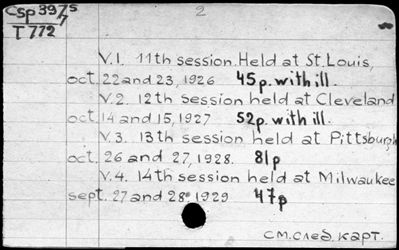 Csp397/5
T772
2
V.1. 11th session. Held at St. Louis,
oct. 22 and 23, 1926 45p. with ill.
V.2. 12th session held at Cleveland
oct. 14 and 15, 1927 52p. with ill.
V.3. 13th session held at Pittsburgh
oct. 26 and 27, 1928. 81p
V.4. 14th session held at Milwaukee
sept. 27 and 28, 1929 47p
см. след. карт.